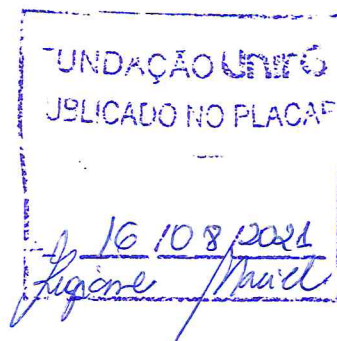 UNDAÇÃO UnirG
UBLICADO NO PLACAR
16 / 08 / 2021
Maciel